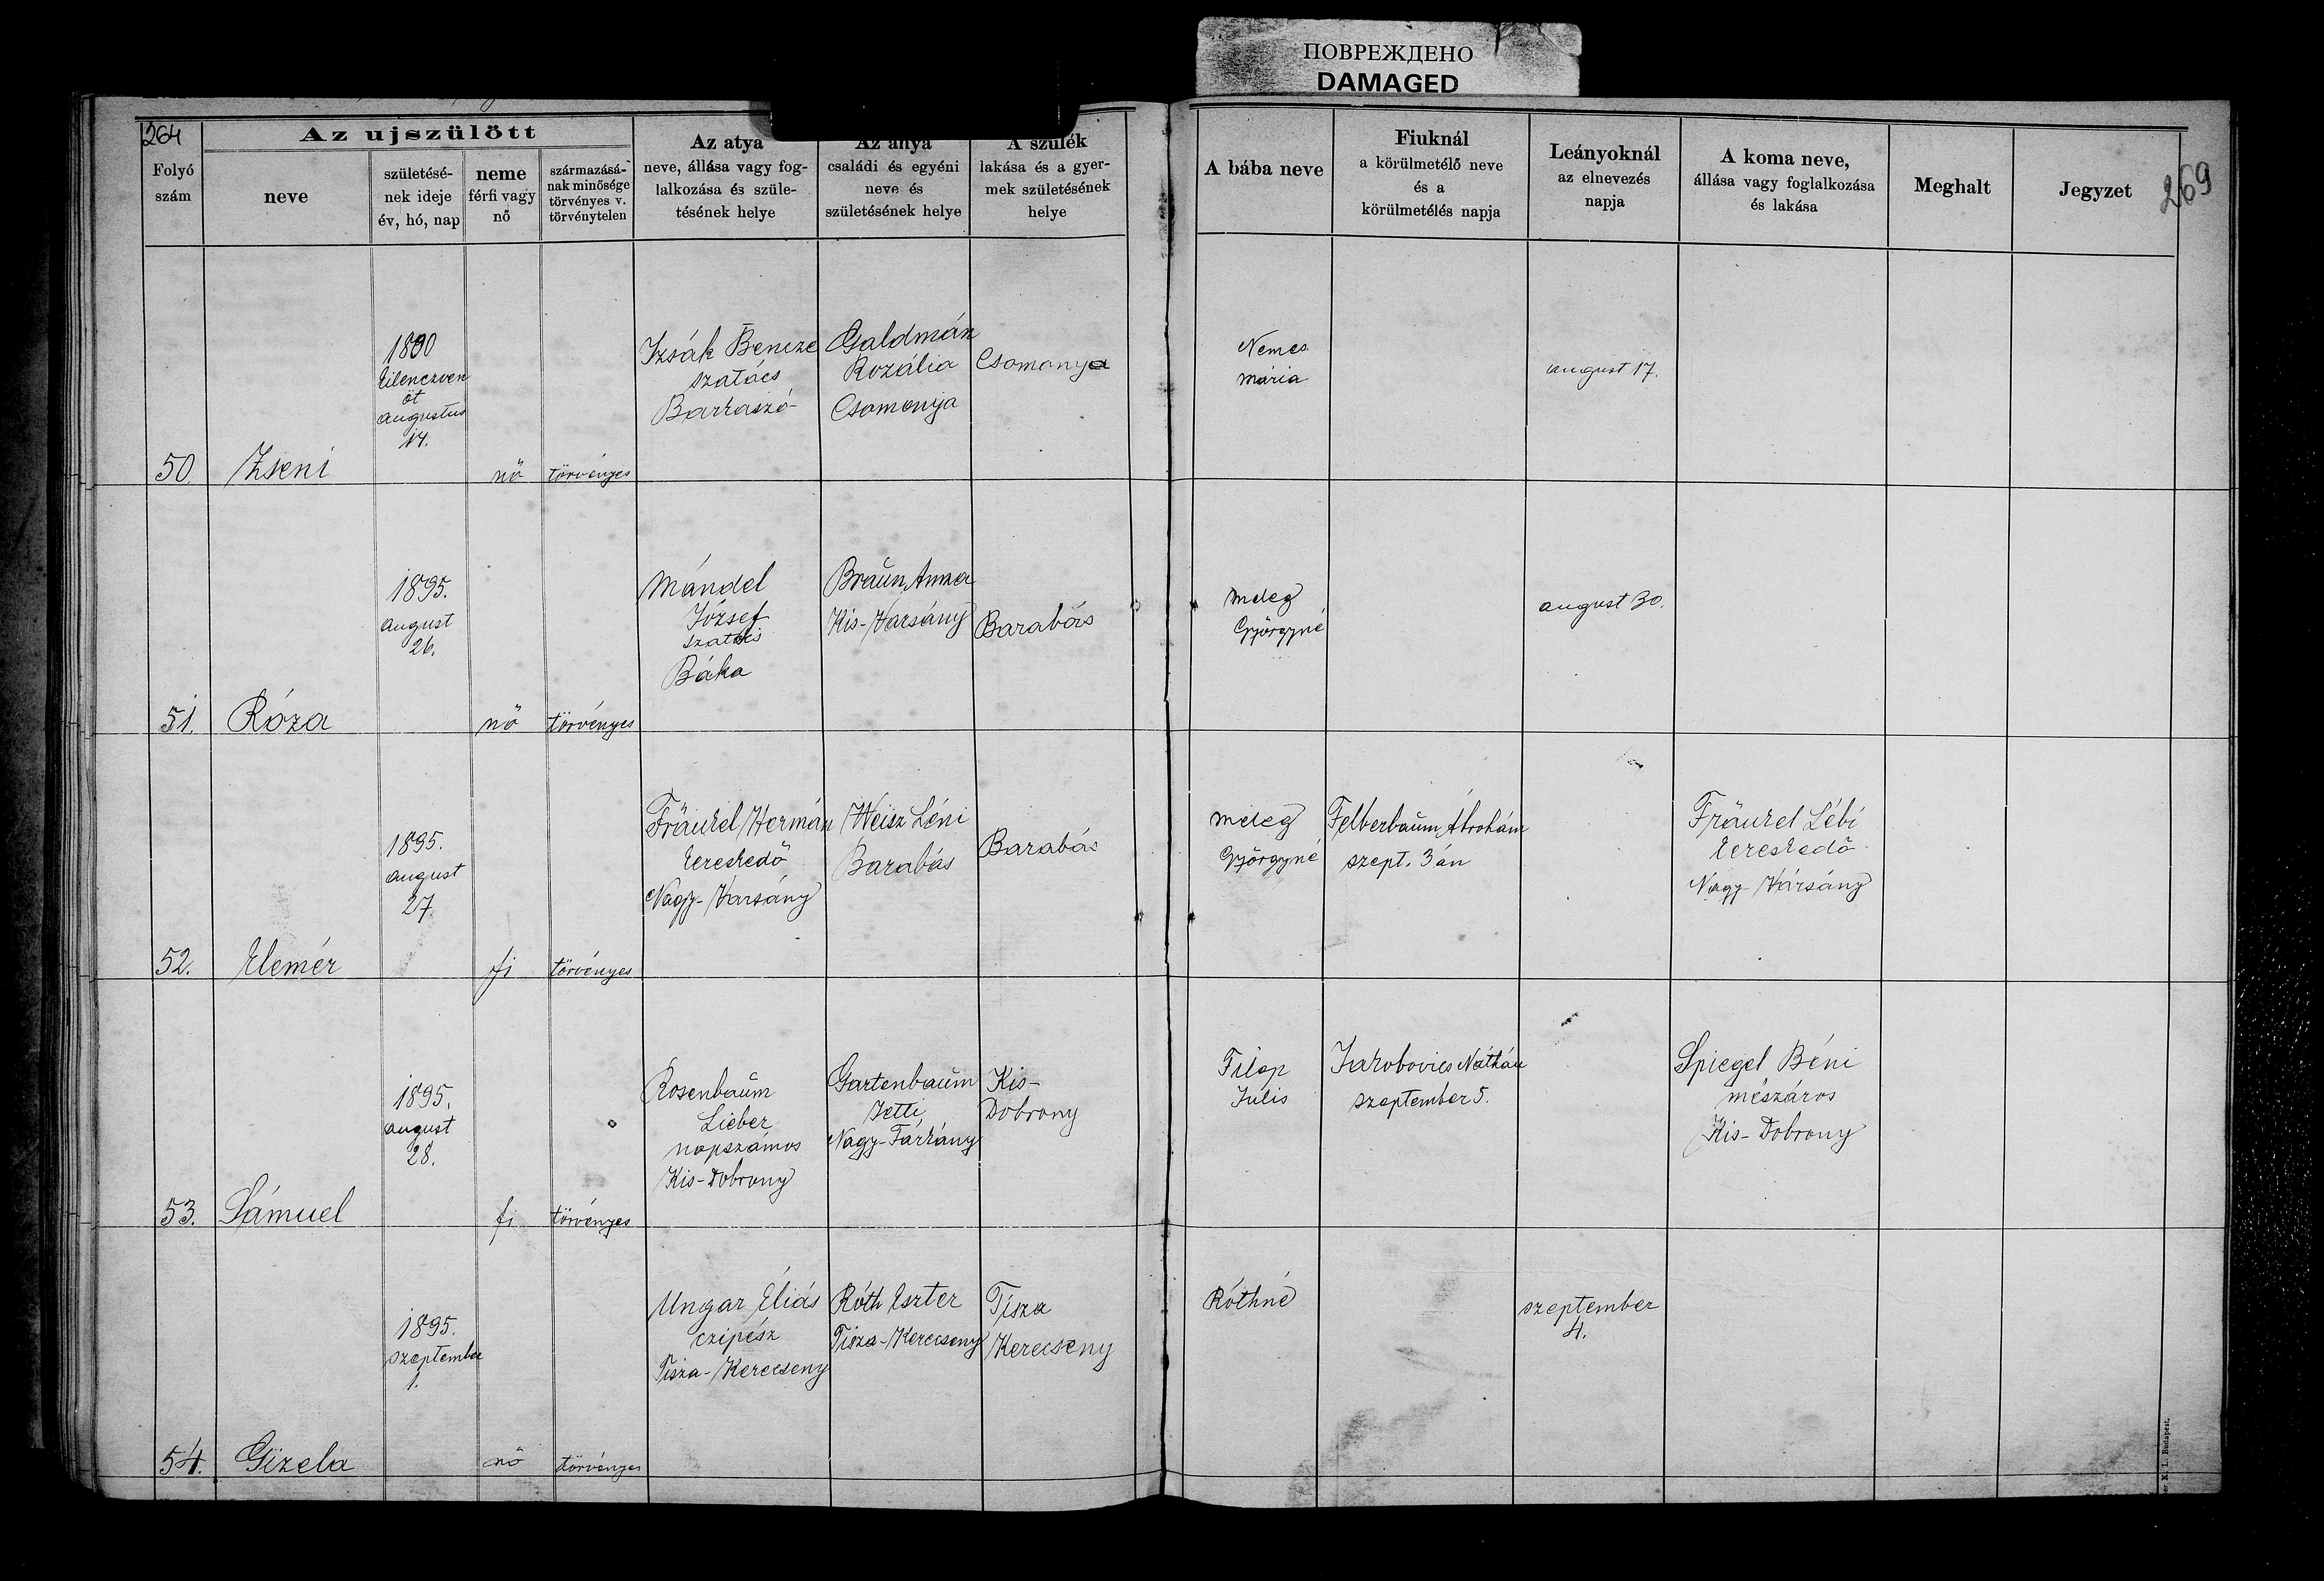 ПОВРЕЖДЕНО
DAMAGED
264
Az ujszülött
Folyó
szám
neve
születésé-
nek ideje
év, hó, nap
neme
férfi vagy
nő
származásá-
nak minősége
törvényes v.
törvénytelen
Az atya
neve, állása vagy fog-
lalkozása és szüle-
tésének helye
Az anya
családi és egyéni
neve és
születésének helye
A szülék
lakása és a gyer-
mek születésének
helye
A bába neve
Fiuknál
a körülmetélő neve
és a
körülmetélés napja
Leányoknál
az elnevezés
napja
A koma neve,
állása vagy foglalkozása
és lakása
Meghalt
Jegyzet
269
50.
Zseni
1890
kilenczven
öt
augustus
14.
nő
törvényes
Izsák Bencze
szatócs
Barkaszó
Galdmán
Rozália
Csomonya
Csomonya
Nemes
mária
august 17.
51.
Róza
1895.
august
26.
nő
törvényes
Mándel
József
szatócs
Báka
Braŭn Anna
Kis-Varsány
Barabás
Meleg
Györgyné
august 30.
52.
Elemér
1895.
august
27.
fi
törvényes
Fränkel Hermán
kereskedő
Nagy-Varsány
Weisz Léni
Barabás
Barabás
Meleg
Györgyné
Felberbaŭm Ábrahám
szept. 3án
Fränkel Lébi
kereskedő
Nagy-Vársány
53.
Sámuel
1895.
august
28.
fi
törvényes
Rosenbaŭm
Lieber
napszámos
Kis-Dobrony
Gartenbaŭm
Jetti
Nagy-Tárkány
Kis-
Dobrony
Filep
Julis
Jakobovics Náthán
szeptember 5.
Spiegel Béni
mészáros
Kis-Dobrony
54.
Gizela
1895.
szeptember
1.
nő
törvényes
Ungar Éliás
czipész
Tisza-Kerecseny
Róth Eszter
Tisza-Kerecseny
Tisza
Kerecseny
Róthné
szeptember
4.
K. L. Budapest.